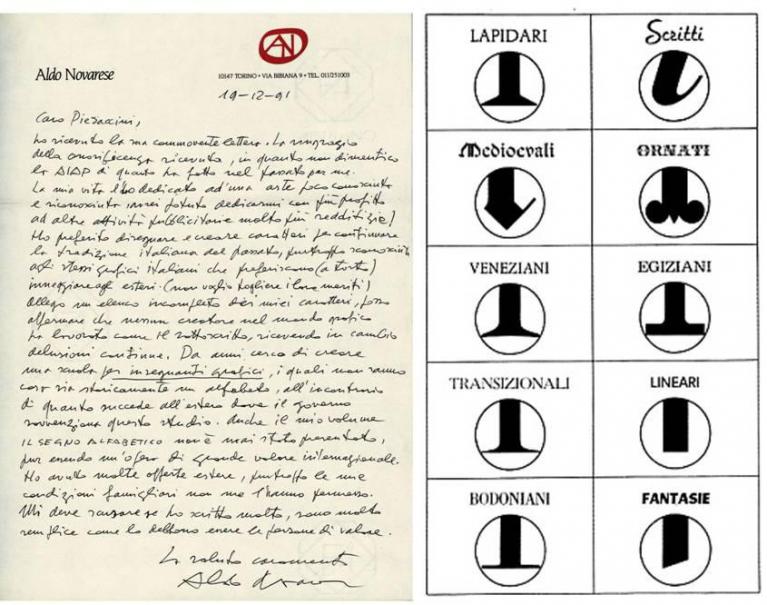 AN
Aldo Novarese
10147 TORINO • VIA BIBIANA 9 • TEL. 011/251003
19-12-91
Caro Pieraccini,
ho ricevuto la sua commovente lettera. La ringrazio
della onorificenza ricevuta, in quanto non dimentico
la AIAP di quanto ha fatto nel passato per me.
La mia vita l'ho dedicato ad'una arte poco conosciuta
e riconosciuta, avrei potuto dedicarmi con più profitto
ad altre attività pubblicitarie molto più redditizie!
Ho preferito disegnare e creare caratteri per continuare
la tradizione italiana del passato, purtroppo sconosciuta
agli stessi grafici italiani che preferiscono (a torto)
inneggiare agli esteri. (non voglio togliere i loro meriti)
Allego un elenco incompleto dei miei caratteri, posso
affermare che nessun creatore nel mondo grafico
ha lavorato come il sottoscritto, ricevendo in cambio
delusioni continue. Da anni cerco di creare
una scuola per insegnanti grafici, i quali non sanno
cosa sia storicamente un alfabeto, all'incontrario
di quanto succede all'estero dove il governo
sovvenziona questo studio. Anche il mio volume
IL SEGNO ALFABETICO non è mai stato presentato,
pur essendo un'opera di grande valore internazionale.
Ho avuto molte offerte estere, purtroppo le mie
condizioni famigliari non me l'hanno permesso.
Mi deve scusare se ho scritto molto, sono molto
semplice come lo debbono essere le persone di valore.
La saluto caramente
Aldo Novarese
LAPIDARI
Scritti
Medioevali
ORNATI
VENEZIANI
EGIZIANI
TRANSIZIONALI
LINEARI
BODONIANI
FANTASIE